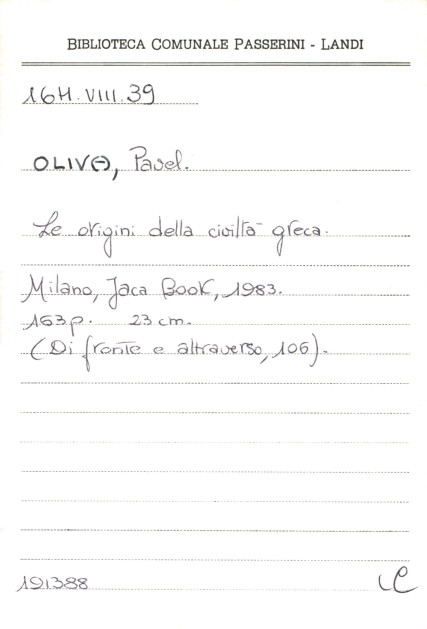 BIBLIOTECA COMUNALE PASSERINI - LANDI
16H.VIII.39
OLIVA, Pavel.
Le origini della civiltà greca.
Milano, Jaca Book, 1983.
163p. 23 cm.
(Di fronte e attraverso, 106).
191388